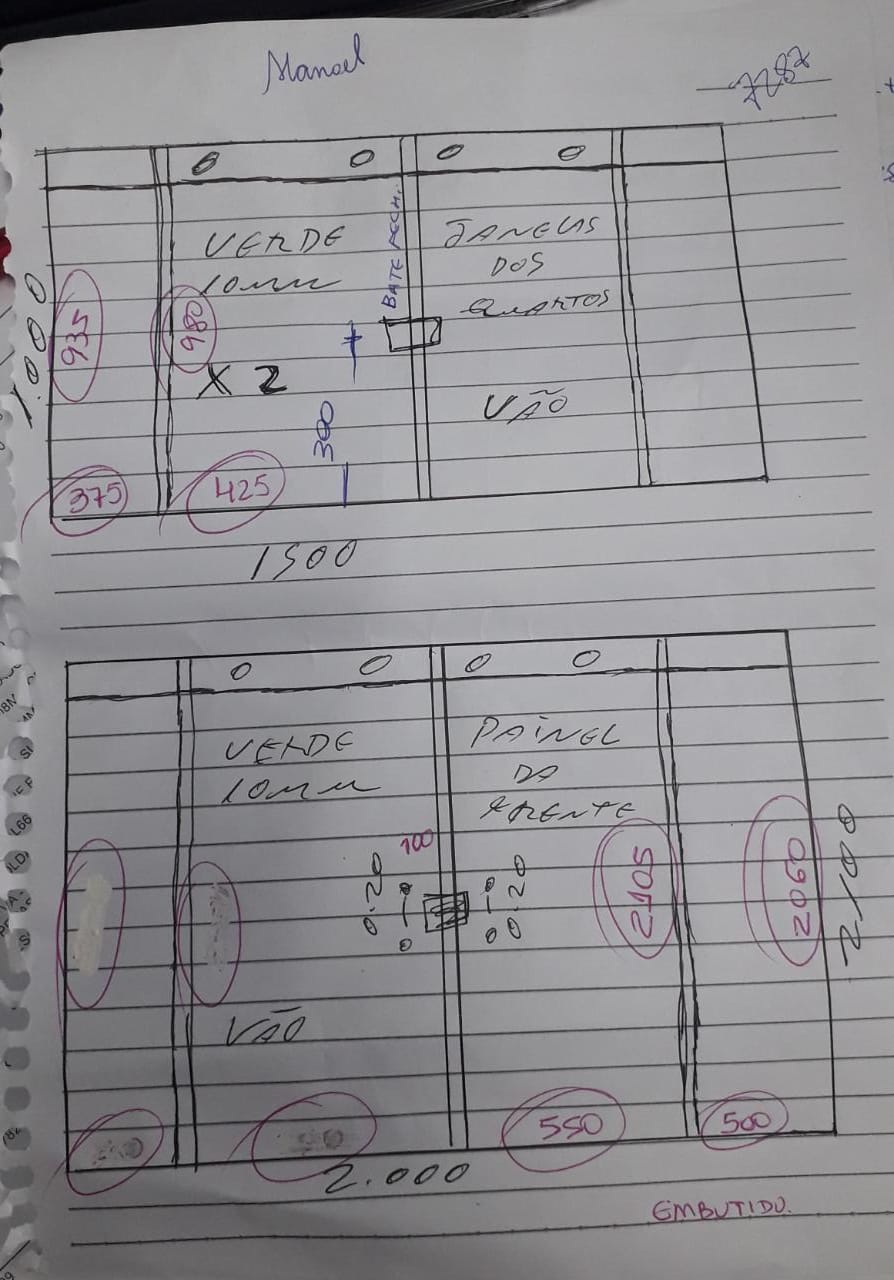 Manoel
7287
VERDE
10mm
X 2
BATE FECH.
JANELAS
DOS
QUARTOS
VÃO
1.000
935
980
300
375
425
1500
VERDE
10mm
PAINEL
DA
FRENTE
100
0.20
0.20
2105
2060
2100
VÃO
550
500
2.000
EMBUTIDO.